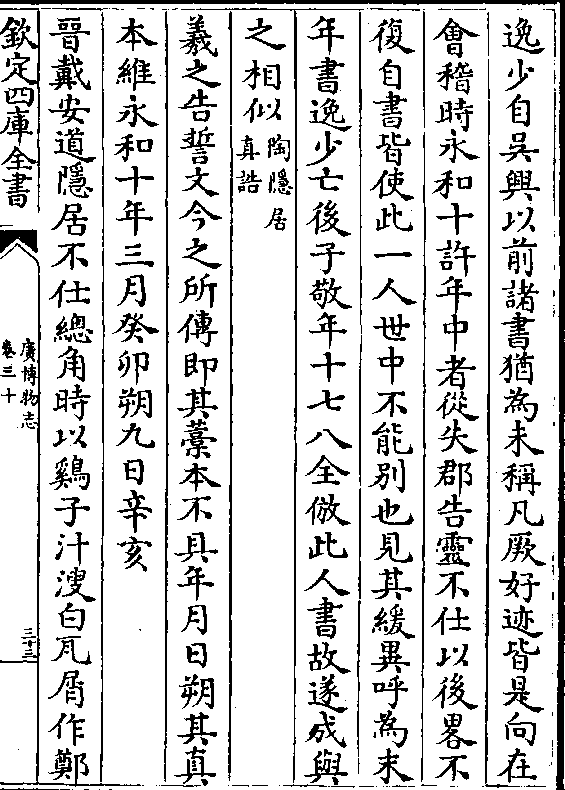 逸少自吳興以前諸書猶為未稱凡厥好迹皆是向在
會稽時永和十許年中者從失郡告靈不仕以後畧不
復自書皆使此一人世中不能別也見其緩異呼為末
年書逸少亡後子敬年十七八全倣此人書故遂成與
之相似陶隱居真誥
羲之告誓文今之所傳即其藁本不具年月日朔其真
本維永和十年三月癸卯朔九日辛亥
晉戴安道隱居不仕總角時以鷄子汁溲白瓦屑作鄭
欽定四庫全書
廣博物志
卷三十
三十三